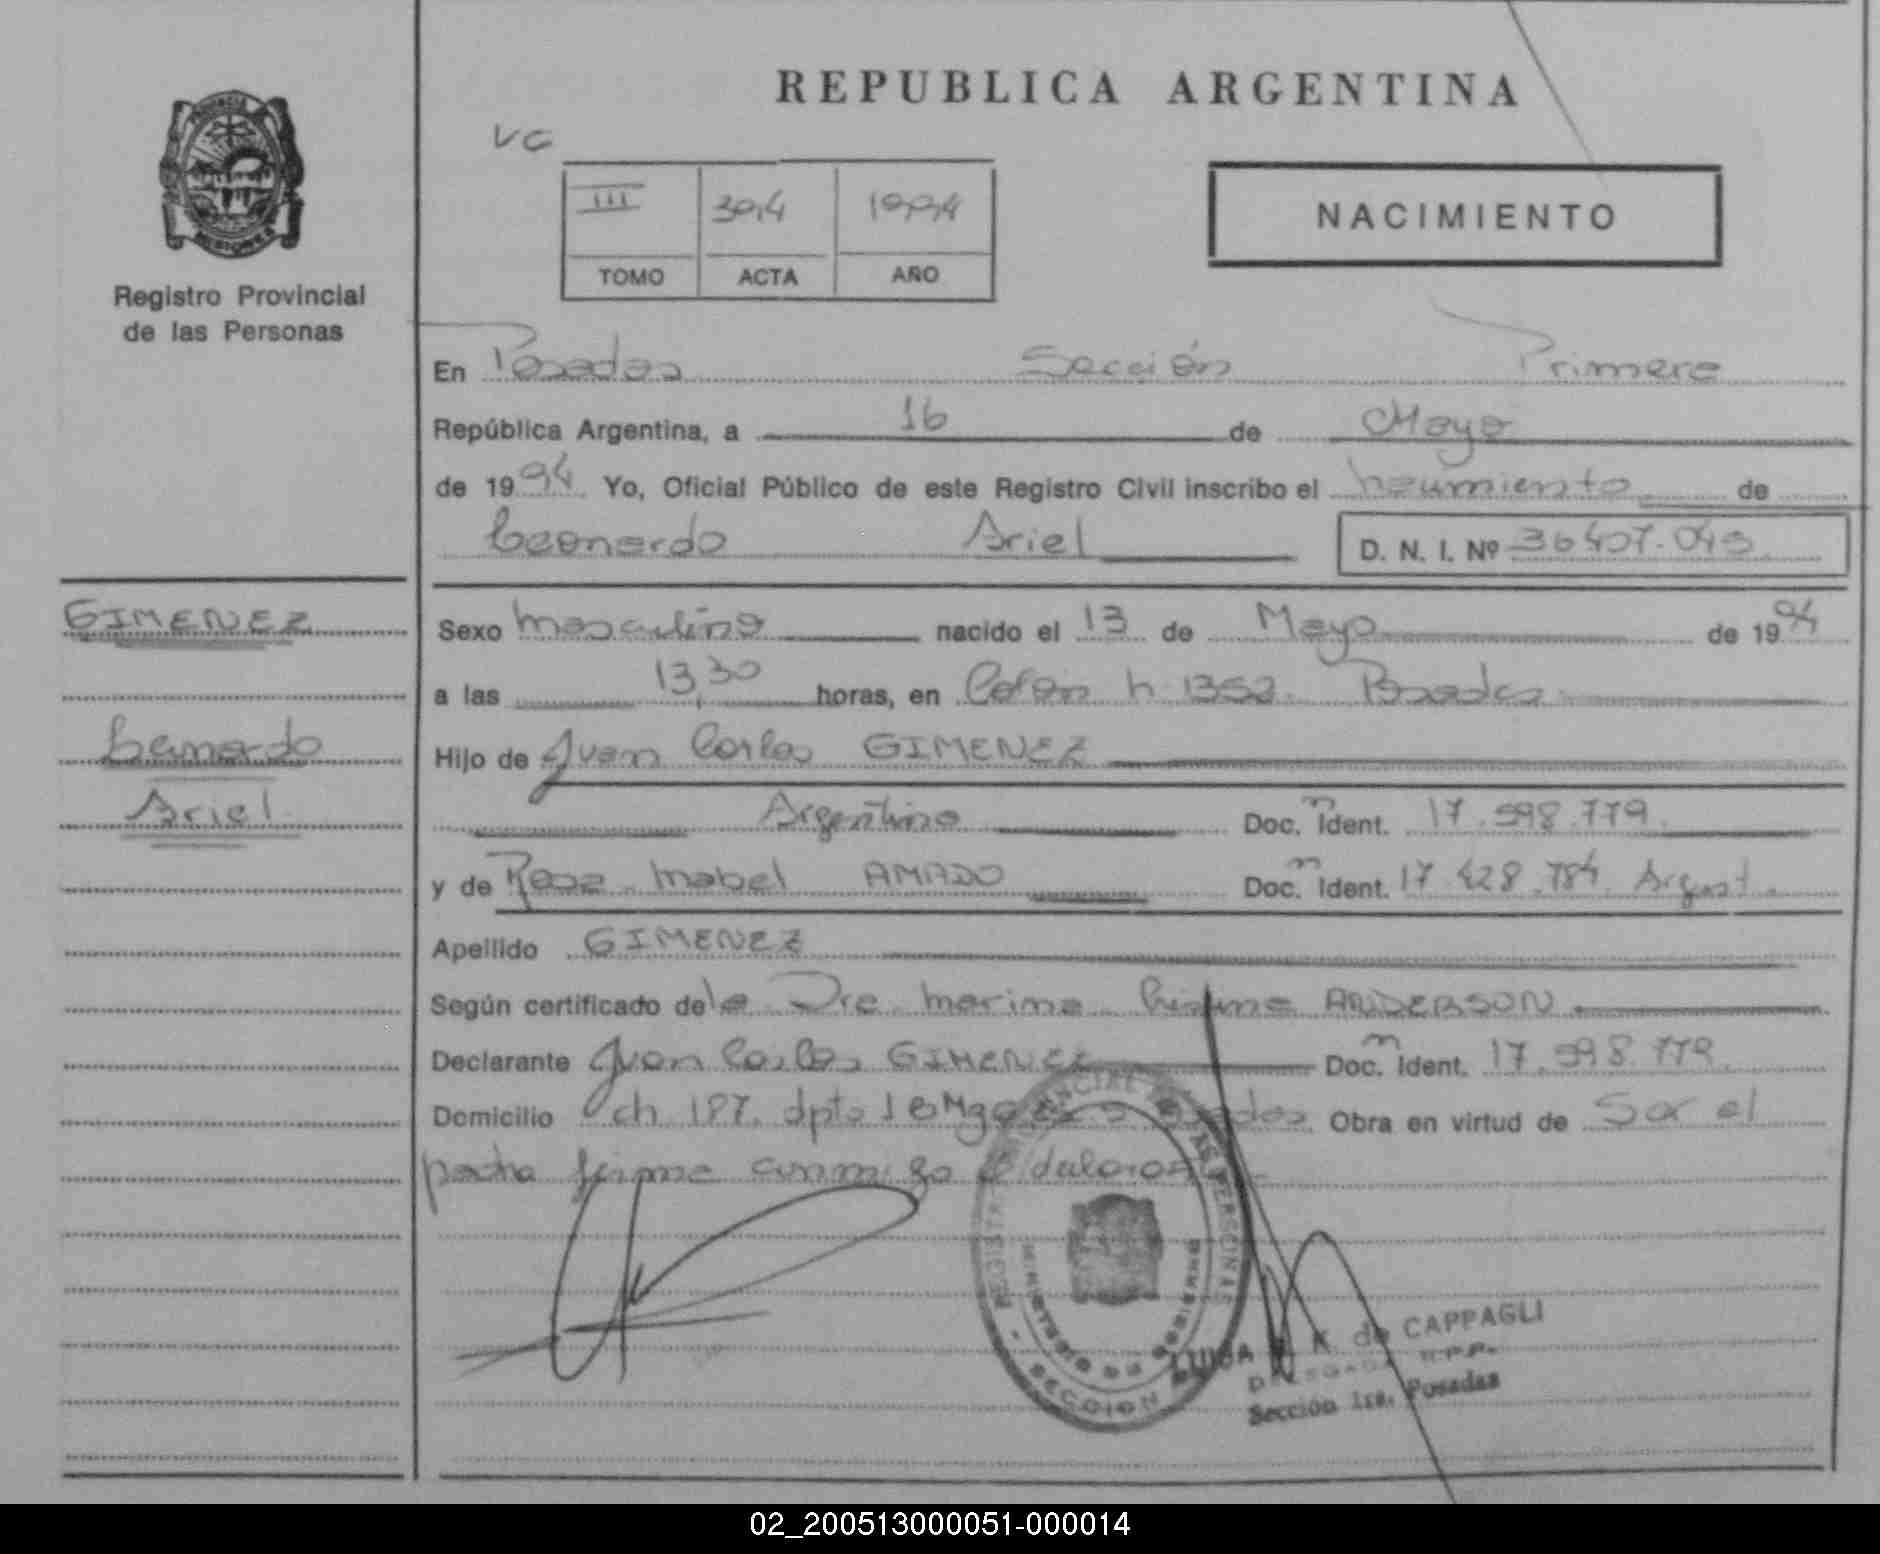 REPUBLICA ARGENTINA
PROVINCIA
MISIONES
Registro Provincial
de las Personas
VC
III 304 1994
TOMO ACTA AÑO
NACIMIENTO
En Posadas Sección Primera
República Argentina, a 16 de Mayo
de 1994 Yo, Oficial Público de este Registro Civil inscribo el nacimiento de
Leonardo Ariel D. N. I. Nº
GIMENEZ
Leonardo
Ariel
Sexo masculino nacido el 13 de Mayo de 1994
a las 13,30 horas, en Colón n 1352 Posadas
Hijo de Juan Carlos GIMENEZ
Argentino Doc. m Ident. 17.598.779
y de Rosa Mabel AMADO Doc. m Ident. 17.428.784 Argent.
Apellido GIMENEZ
Según certificado de la Dra marina ANDERSON
Declarante Juan Carlos GIMENEZ Doc. m Ident. 17.598.779
Domicilio ch 187. dpto Obra en virtud de Ser el
padre firma conmigo
SECCION
CAPPAGLI
DELEGADA R.P.P.
Sección 1ra. Posadas
02_200513000051-000014